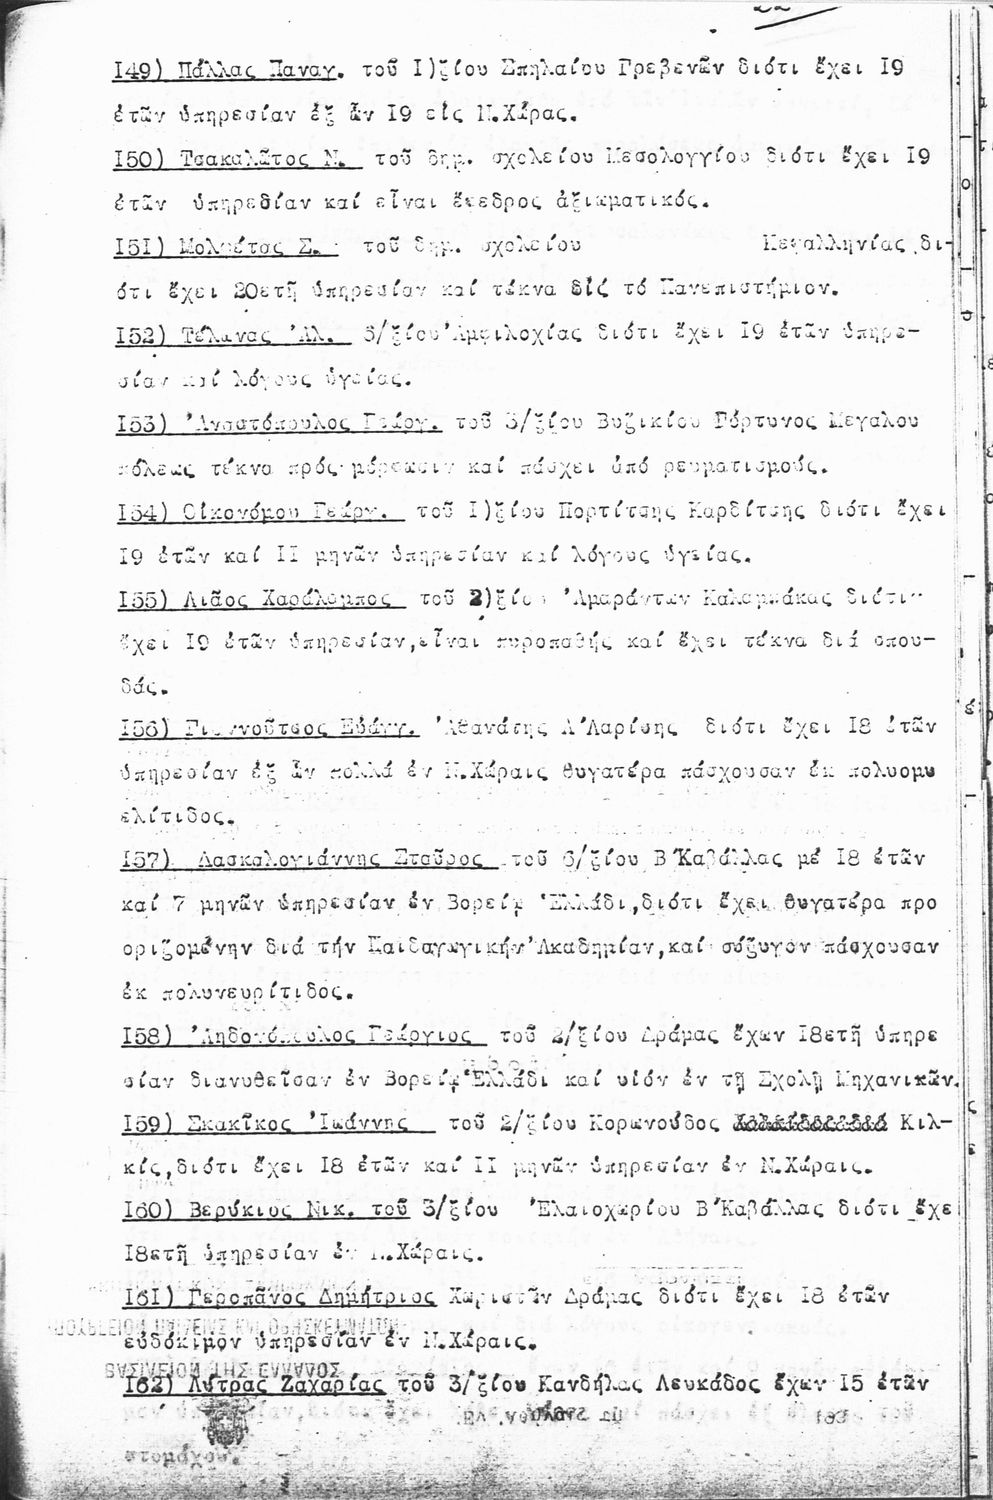 22
I49) Πάλλας Παναγ. τοῦ I)ξίου Σπηλαίου Γρεβενῶν διότι ἔχει I9
ἐτῶν ὑπηρεσίαν ἐξ ὧν I9 εἰς Ν.Χώρας.
I50) Τσακαλᾶτος Ν. τοῦ δημ. σχολείου Μεσολογγίου διότι ἔχει I9
ἐτῶν ὑπηρεσίαν καί εἶναι ἔφεδρος ἀξιωματικός.
I5I) Μολφέτας Σ. τοῦ δημ. σχολείου Κεφαλληνίας δι-
ότι ἔχει 20ετῆ ὑπηρεσίαν καί τέκνα διά τό Πανεπιστήμιον.
I52) Τέλωνας 'Αλ. 6/ξίου 'Αμφιλοχίας διότι ἔχει I9 ἐτῶν ὑπηρε-
σίαν καί λόγους ὑγείας.
I53) 'Αναστόπουλος Γεώργ. τοῦ 3/ξίου Βυζικίου Γόρτυνος Μεγαλου
πόλεως τέκνα πρός μόρφωσιν καί πάσχει ἀπό ρευματισμούς.
I54) Οἰκονόμου Γεώργ. τοῦ I)ξίου Πορτίτσης Καρδίτσης διότι ἔχει
I9 ἐτῶν καί II μηνῶν ὑπηρεσίαν καί λόγους ὑγείας.
I55) Λιᾶος Χαράλαμπος τοῦ 2)ξίου 'Αμαράντων Καλαμπάκας διότι
ἔχει I9 ἐτῶν ὑπηρεσίαν,εἶναι πυροπαθής καί ἔχει τέκνα διά σπου-
δάς.
I56) Γιαννοῦτσος Εὐάγγ. 'Αθανάτης Α'Λαρίσης διότι ἔχει I8 ἐτῶν
ὑπηρεσίαν ἐξ ὧν πολλά ἐν Ν.Χώραις θυγατέρα πάσχουσαν ἐκ πολυομυ
ελίτιδος.
I57) Δασκαλογιάννης Σταῦρος τοῦ 6/ξίου Β'Καβάλλας μέ I8 ἐτῶν
καί 7 μηνῶν ὑπηρεσίαν ἐν Βορείῳ 'Ελλάδι,διότι ἔχει θυγατέρα προ
οριζομένην διά τήν Παιδαγωγικήν 'Ακαδημίαν,καί σύζυγον πάσχουσαν
ἐκ πολυνευρίτιδος.
I58) 'Αηδονόπουλος Γεώργιος τοῦ 2/ξίου Δράμας ἔχων I8ετῆ ὑπηρε
σίαν διανυθεῖσαν ἐν Βορείῳ 'Ελλάδι καί υἱόν ἐν τῇ Σχολῇ Μηχανικῶν.
I59) Σκακῖκος 'Ιωάννης τοῦ 2/ξίου Κορωνούδος Κιλ-
κίς,διότι ἔχει I8 ἐτῶν καί II μηνῶν ὑπηρεσίαν ἐν Ν.Χώραις.
I60) Βερύκιος Νικ. τοῦ 3/ξίου 'Ελαιοχωρίου Β'Καβάλλας διότι ἔχει
I8ετῆ ὑπηρεσίαν ἐν Ν.Χώραις.
I6I) Γεροπᾶνος Δημήτριος Χωριστῶν Δράμας διότι ἔχει I8 ἐτῶν
εὐδόκιμον ὑπηρεσίαν ἐν Ν.Χώραις.
I62) Λύτρας Ζαχαρίας τοῦ 3/ξίου Κανδήλας Λευκάδος ἔχων I5 ἐτῶν
στομάχου.